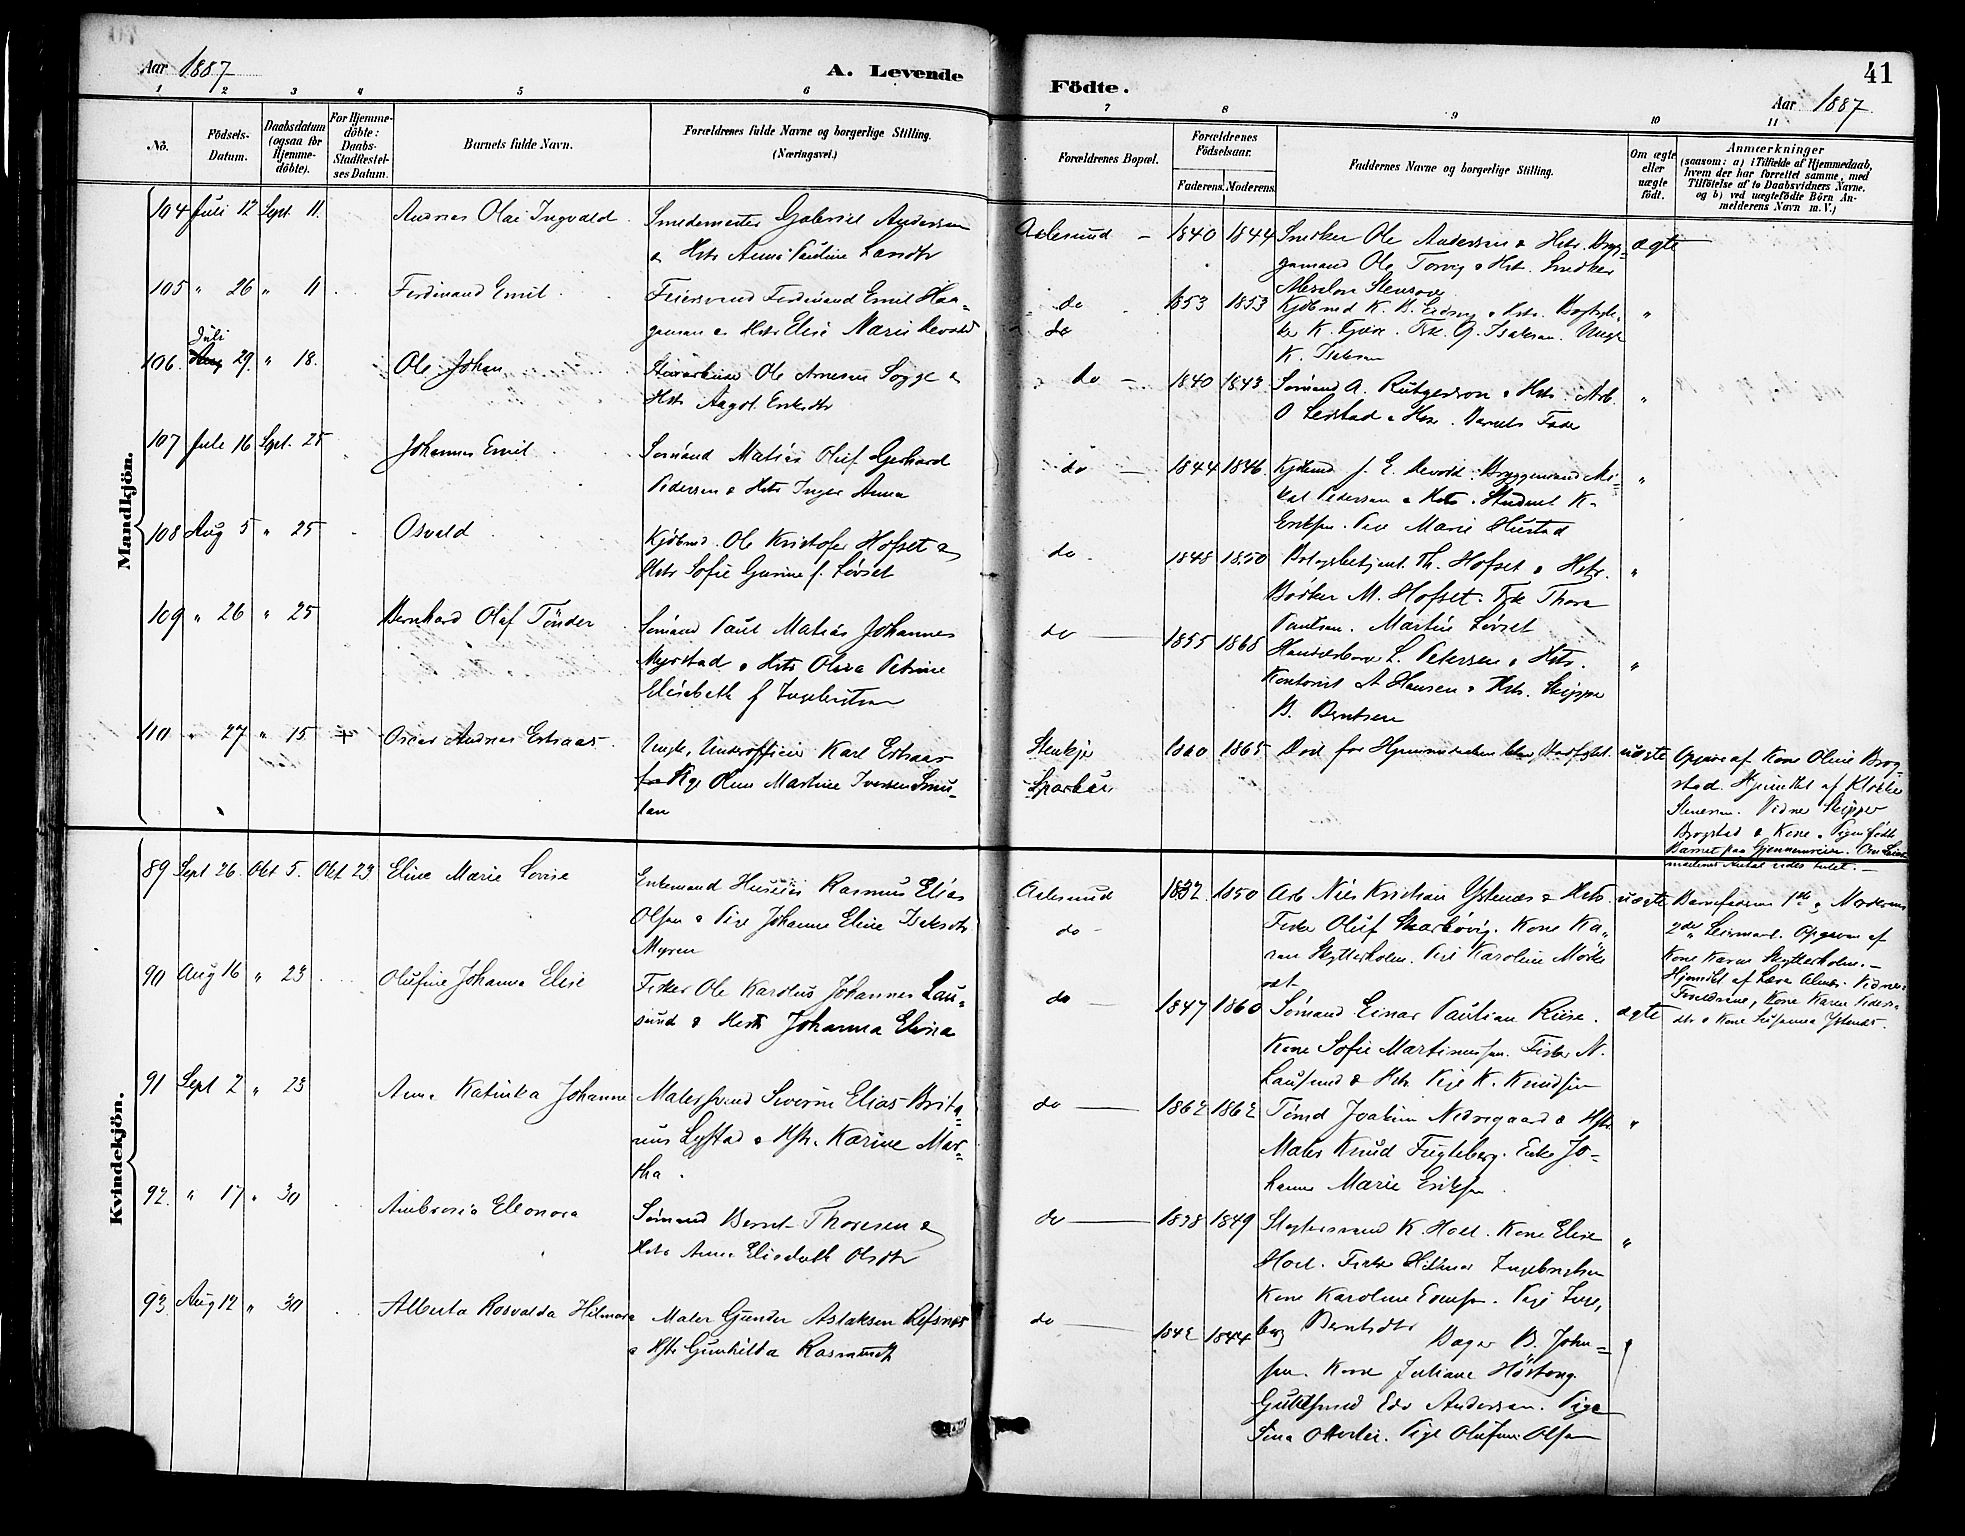 Aar 1887
A. Levende
Födte.
41
Aar 1887
1 2 3 4 5 6 7 8 9 10 11
No.
Födsels-Datum.
Daabsdatum (ogsaa for Hjemme-döbte).
For Hjemme-döbte: Daabs-Stadfæstel-ses Datum.
Barnets fulde Navn.
Forældrenes fulde Navne og borgerlige Stilling.
(Næringsvei.)
Forældrenes Bopæl.
Forældrenes Födselsaar.
Faderens. Moderens.
Faddernes Navne og borgerlige Stilling.
Om ægte eller uægte födt.
Anmærkninger
(saasom: a) i Tilfælde af Hjemmedaab,
hvem der har forrettet samme, med
Tilföielse af to Daabsvidners Navne,
og b) ved uægtefödte Börn An-
melderens Navn m. V.)
Mandkjön.
104 Juli 12 Sept. 11. Andreas Olai Ingvald
Smedemester Gabriel Andersen
& Hstr Anna Pauline Landtr
Aalesund 1840 1844
Snedker Ole Andersen & Hstr. Bryg-
gemand Ole Torvig & Hst. Snedker
ægte
105 " 26 " 11 Ferdinand Emil
Feiersvend Ferdinand Emil Haa-
gensen & Hstr Elise Marie Devold
do
do
1853 1853
K. Isaksen
"
106. Juli 29. " 18. Ole Johan
Ole Arnesen Sogge &
Hstr Aagot Eriksdtr
do 1840 1843
Sömand A. Rutgersson & Hstr. Arb.
O Leistad & Hstr. Barnets Fader
"
107 Juli 16 Sept. 25 Johannes Emil
Sömand Matias Oluf Gerhard
Pedersen & Hstr Inger Anna
do 1844 1846
J. E. Devold. Bryggemand Mi-
kal Pedersen & Hstr. Student K.
Eriksen. Pige Marie Hustad
"
108 Aug 5 " 25 Osvald
Kjöbmd. Ole Kristofer Hofset &
Hstr Sofie Gurine f. Lövset
do 1848 1850
Th. Hofset & Hstr.
Bödker M. Hofset. Frk Thora
Paulsen. Martin Lövset
"
109 " 26 " 25 Bernhard Olaf Tönder
Sömand Paul Matias Johannes
Myrstad & Hstr Oleva Petrine
Elisabeth f Ingebrigtsen
do 1855 1865
L. Petersen & Hstr.
Kontorist A Hansen & Hstr. Skipper
B. Berntsen
"
110 " 27 " 15 + Oscar Andreas Ertsaas
Ungk. Underofficer Karl Ertsaas
Pige Oline Martine Iversen Smu-
lan
Stenkjær
Sparbu
1860 1865
Död för Hjemmedaaben blev stadfæstet.
uægte
Opgave af Kone Oline Brog-
stad. Hjemdöbt af Klokker
Stenersen. Vidner Skipper
Brogstad & Kone. Pigen födte
Barnet paa Gjennemreise. Om Leier-
maalenes Antal vides Intet.
Kvindekjön.
89 Sept 26. Okt 5. Okt 23 Eline Marie Lovise
Enkemand Huseier Rasmus Elias
Olsen & Pige Johanne Eline Isaksdtr
Myren
Aalesund
do
1832. 1850
Arb Nils Kristian Ystenes & Hstr.
Fisker Oluf Skarbövig. Kone Ka-
ren Skytterholm. Pige Karoline Mörke-
set
uægte
Barnefaderens 1ste & Moderens
2det Leiermaal. Opgave af
Kone Karen Skytterholm. –
Hjemdöbt af Vidner:
Forældrene, Kone Karen Peders-
dtr & Kone Susanna Ystenes.
90 Aug 16 " 23 Olufine Johanna Elise
Fisker Ole Karolus Johannes Lau-
sund & Hstr Johanna Elina
do 1847 1860
Sömand Einar Paulian Riise.
Kone Sofie Martinussen. Fisker N.
Lausund & Hstr. Pige K. Knudsen
ægte
91 Sept 2 " 23 Anna Katinka Johanne
Malersvend Severin Elias Brita-
nus Lystad & Hstr. Karine Mar-
tha.
do 1862 1862
Tömd Joakim Nedregaard & Hstr
Maler Knud Fugleberg. Enke Jo-
hanne Marie Eriksen.
"
92. " 17 " 30 Ambrosia Eleonora
Sömand Bernt Thoresen &
Hstr Anna Elisabeth Olsdtr
do 1838 1849
K. Hoel. Kone Elise
Hoel. Fisker Hilmar Ingebrigtsen
Kone Karoline Pige Inge-
borg Berntsdtr
"
93. Aug 12 " 30 Alberta Rosvalda Hilmara
Maler Gunder Aslaksen Refsnes
& Hstr Gunhilda Rasmusdtr
do 1842 1844
Bager B. John-
sen. Kone Juliane
Guldsmed Edv Andersen. Pige
Sina Otterlei. Pige Olufine Olsen
"